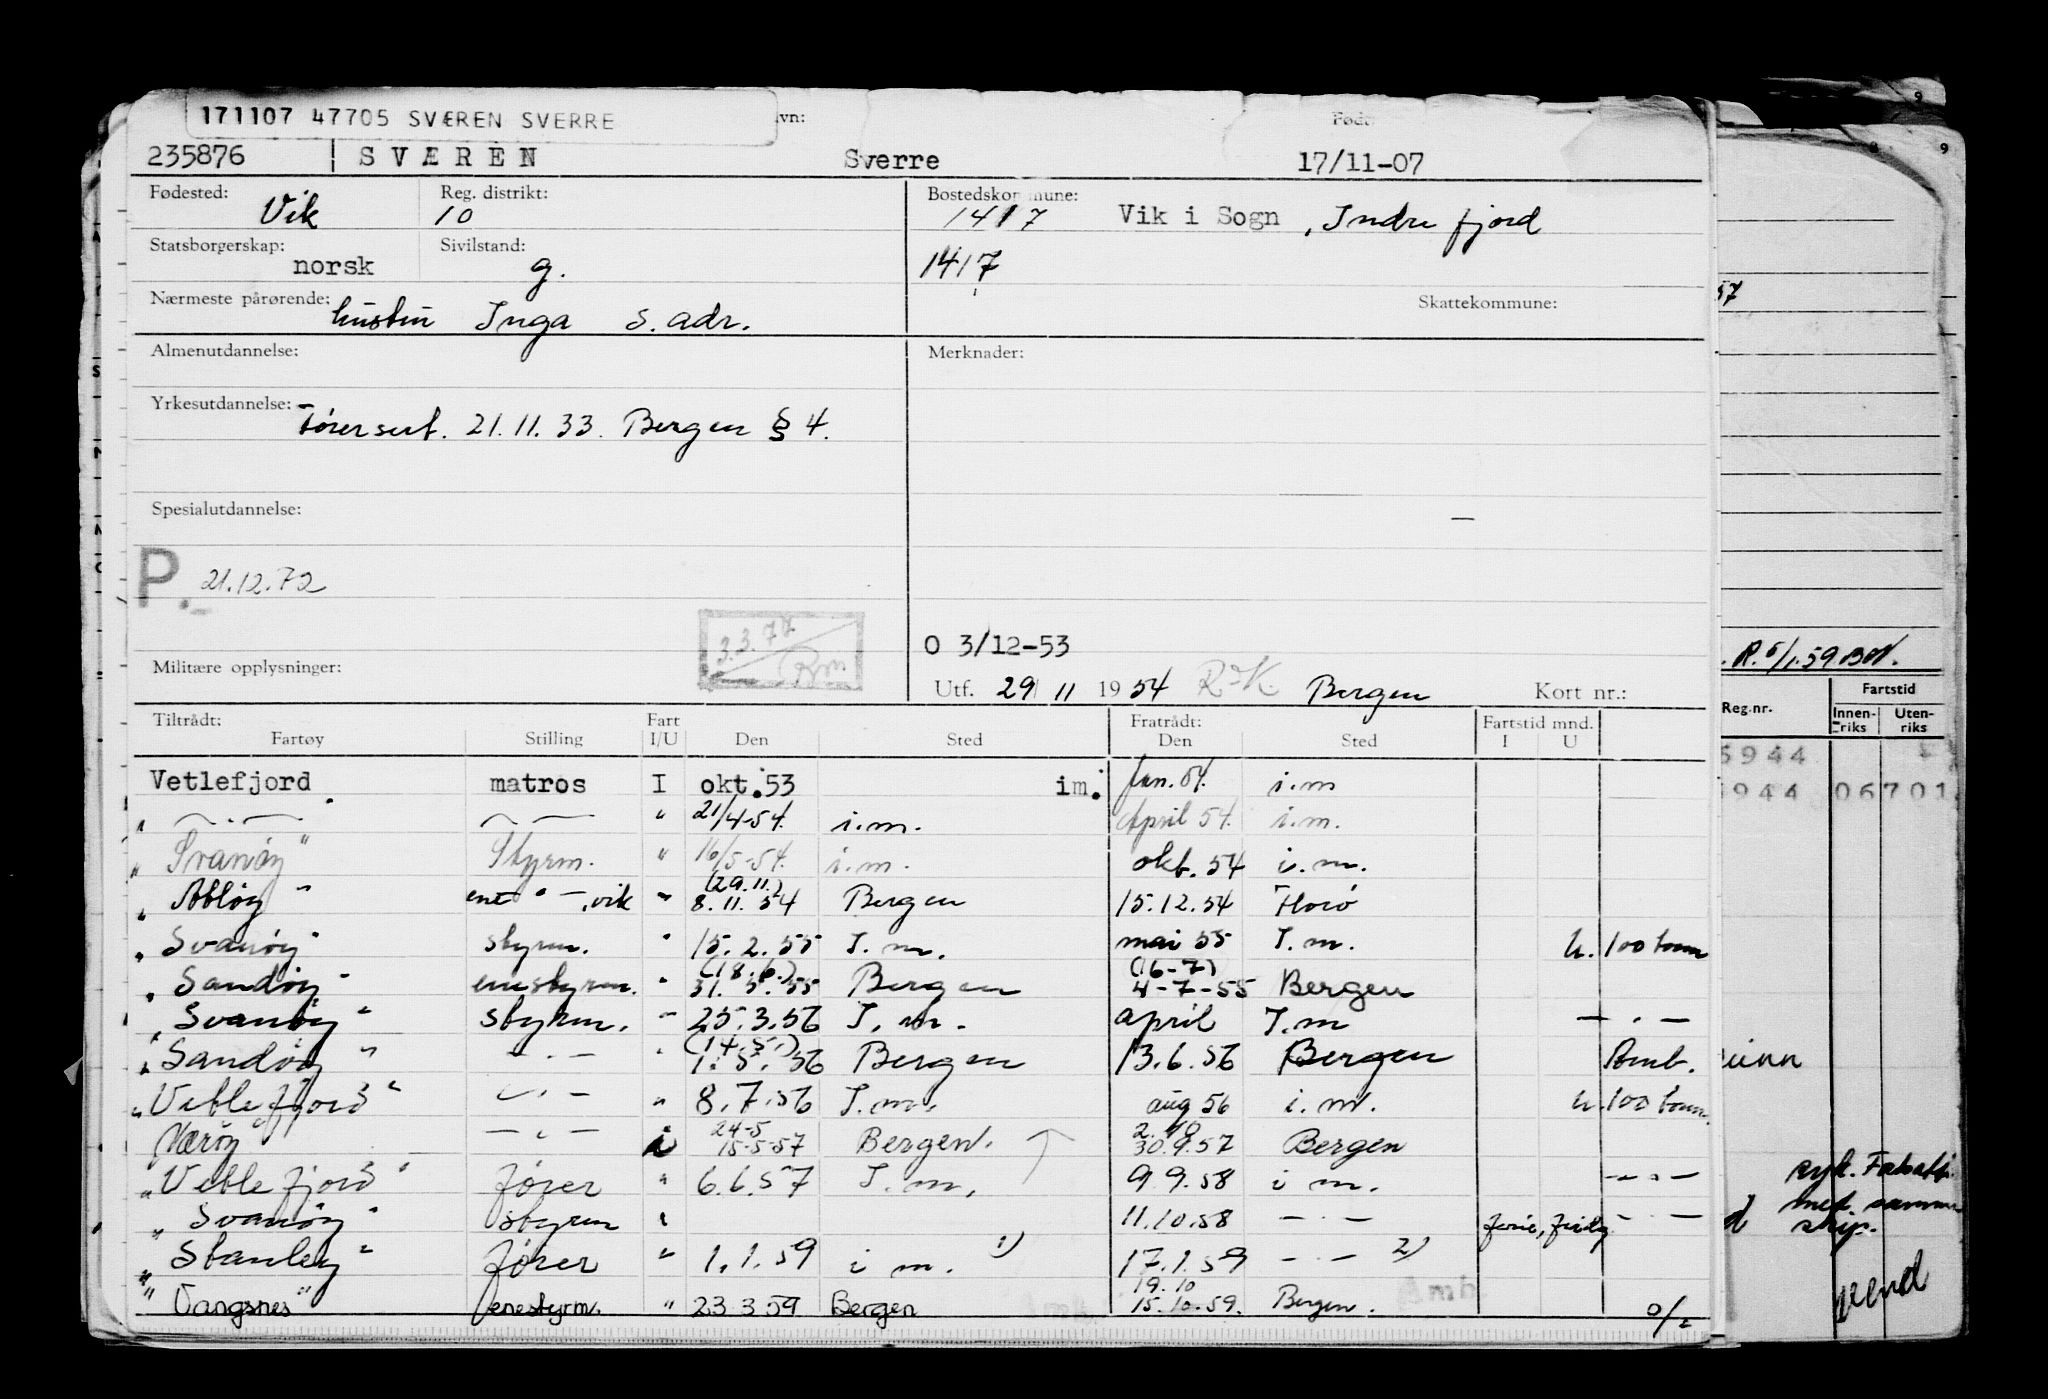 171107 47705 SVÆREN SVERRE
vn: Født:
235876 SVÆREN Sverre 17/11-07
Fødested: Vik Reg. distrikt: 10 Bostedskommune: 1417 Vik i Sogn, Indre fjord
Statsborgerskap: norsk Sivilstand: g. 1417
Nærmeste pårørende: hustru Inga s. adr. Skattekommune:
Almenutdannelse: Merknader:
Yrkesutdannelse: Førersert. 21.11.33. Bergen § 4.
Spesialutdannelse:
P. 21.12.72
3.3.77 Rm
O 3/12-53
Militære opplysninger: Utf. 29 11 1954 Bergen Kort nr.:
Tiltrådt: Fart Fratrådt: Fartstid mnd.
Fartøy Stilling I/U Den Sted Den Sted I U
Vetlefjord matros I okt.53 im. Jan. 54. i.m
" — . — — — " 21/4-54. i.m. April 54. i.m.
" Svanøy " Styrm. " 16/5-54. i.m. okt. 54 i.m.
" Atløy " " (29.11.) 8.11.54 Bergen 15.12.54 Florø
" Svanøy " styrm. " 15.2.55 I.m. mai 55 I.m. u. 100 tonn
" Sandøy " enestyrm. " (18.6.) 31.5.55 Bergen (16-7) 4-7-55 Bergen
" Svanøy " styrm. " 25.3.56 I.m. april I.m — . —
" Sandøy " — . — " (14.5.) 1.5.56 Bergen 13.6.56 Bergen Amb.
" Vetlefjord " — . — " 8.7.56 I.m. aug 56 i.m. u. 100 tonn.
Værøy " — . — i 24-5 15-5-57 Bergen. 2.10 30.9.57 Bergen
" Vetlefjord " fører " 6.6.57 I.m. 9.9.58 i m. — . —
" Svanøy " styrm " 11.10.58 — . — ferie, — . —
" Stanley " fører " 1.1.59 i m. 1) 17.1.59 — . — 2)
" Vangsnes " enestyrm. " 23 3 59 Bergen 19.10 15.10.59. Bergen. Amb. 0/2
9
9
57
. R. 5/1.59.
Fartstid
Reg.nr. Innen-riks Uten-riks
5944
5944 06701
syk.
med samme
skip.
vend